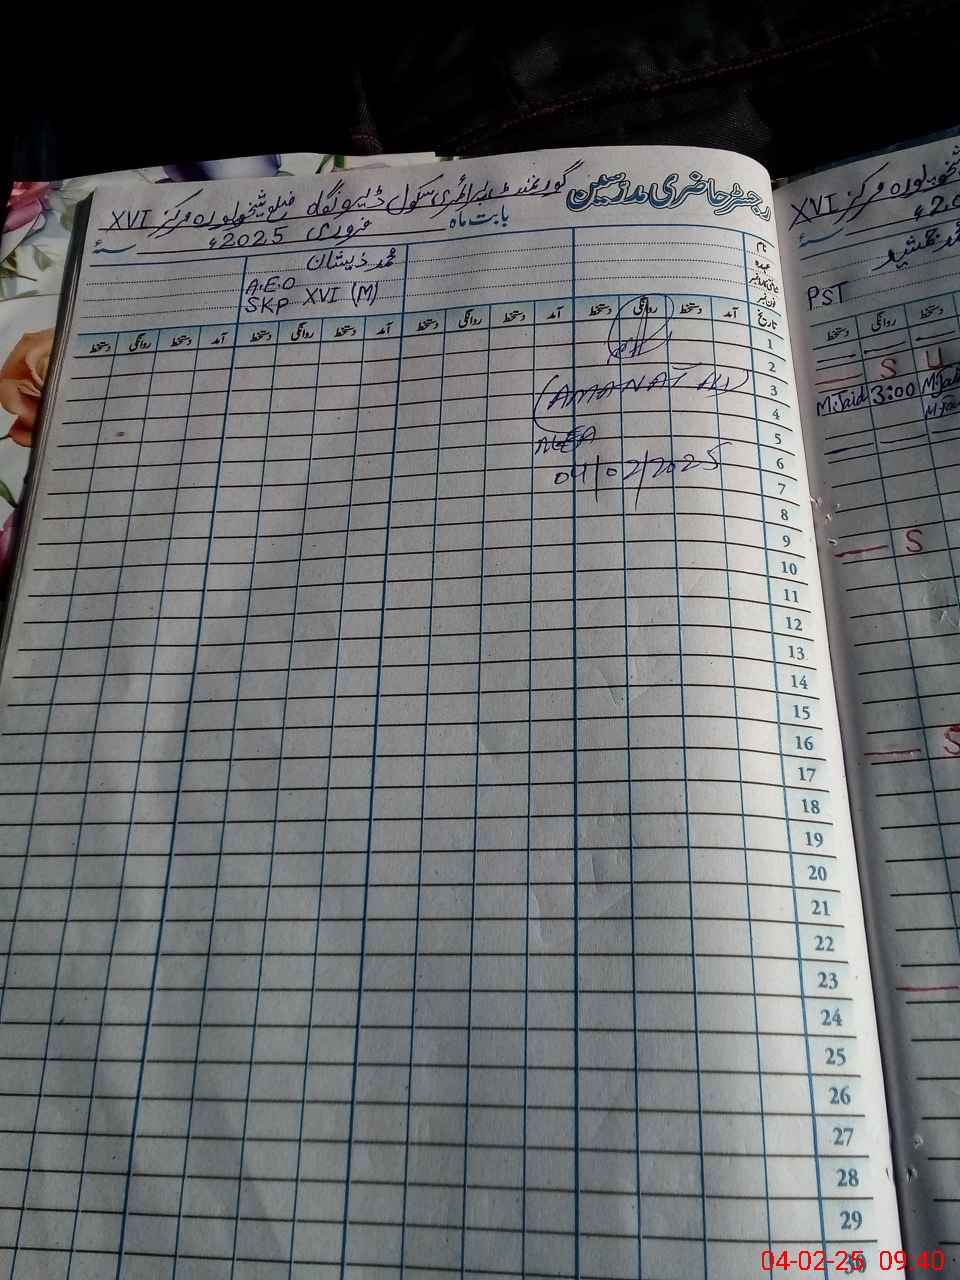 رجسٹر حاضری مدرسین گورنمنٹ پرائمری سکول ڈیرو نگاہ ضلع شیخوپورہ مرکز XVI
بابت ماہ فروری 2025ء سنہ
نام
عہدہ
فون نمبر
محمد ذیشان
A.E.O
SKP XVI (M)
تاریخ آمد دستخط روانگی دستخط آمد دستخط روانگی دستخط آمد دستخط روانگی دستخط آمد دستخط روانگی دستخط
1
2
3
4
5
6
7
8
9
10
11
12
13
14
15
16
17
18
19
20
21
22
23
24
25
26
27
28
29
30
(AMANAT ALI)
04/02/2025
شیخوپورہ مرکز XVI
PST
دستخط روانگی دستخط
S U
M.Jaid 3:00 M.Jaid
S
S
04-02-25 09:40